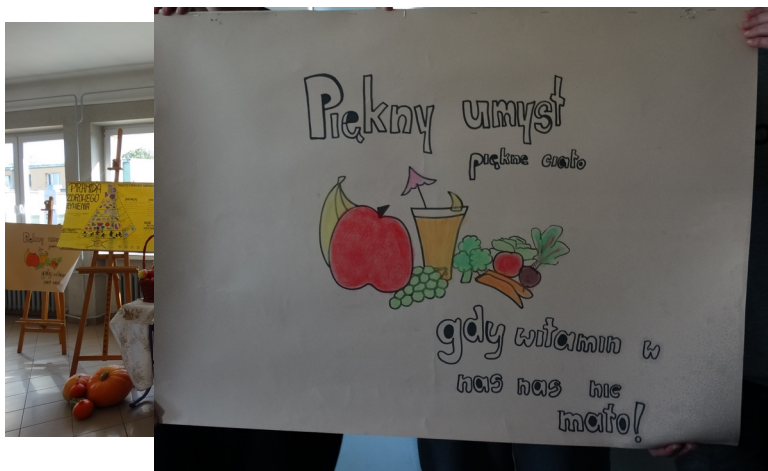 PIRAMIDA
ZDROWEGO
ŻYWIENIA
Piękny umysł
piękne ciało
gdy witamin w
nas nas nie
mało!